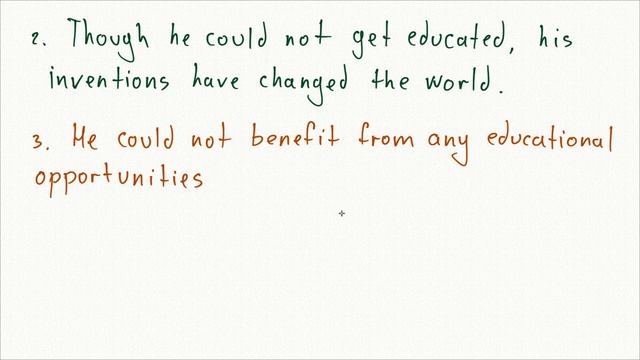 2. Though he could not get educated, his
inventions have changed the world.
3. He could not benefit from any educational
opportunities